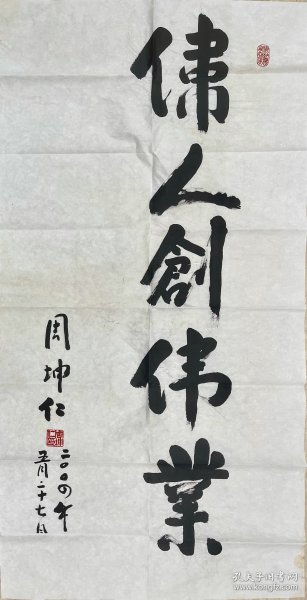 偉人創伟業
周坤仁
二〇〇四年
五月二十七日
孔夫子旧书网